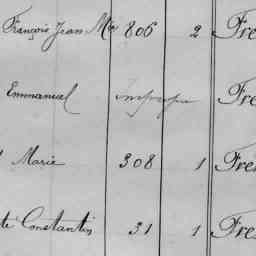 François Jean Mie 806 2 Fre
Emmanuel Fre
Marie 308 1 Fre
Constantin 31 1 Fre